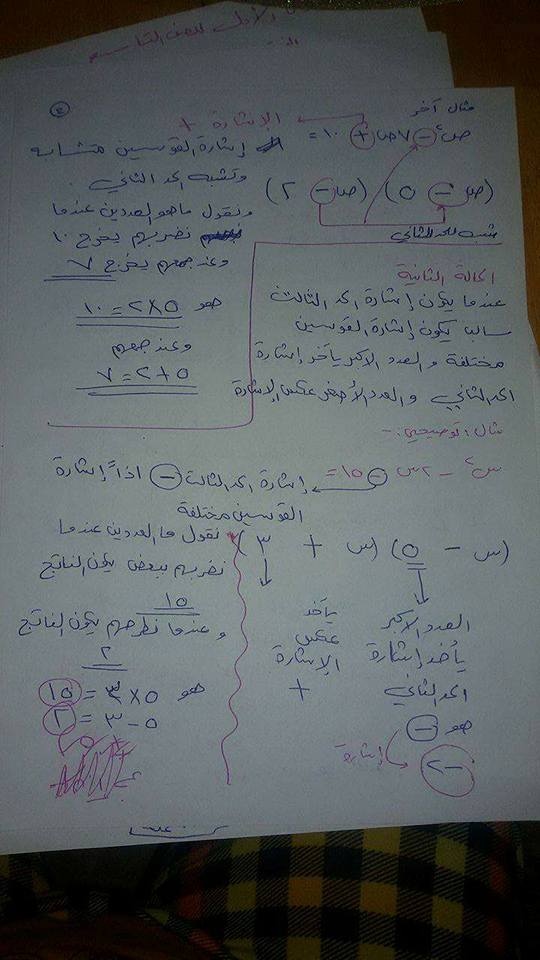 الأول للصف التاسع
٤
مثال آخر
ص٢ − ٧ص + ١٠ =
الإشارة +
(ص − ٥) (ص − ٢)
تشبه للحد الثاني
إشارة القوسين متشابه
وتشبه الحد الثاني.
ونقول ما هو العددين عندما
نضربهم يخرج ١٠
وعند جمعهم يخرج ٧
هو ٥×٢=١٠
وعند جمعهم
٥+٢=٧
الحالة الثانية
عندما يكون إشارة الحد الثالث
سالبا يكون إشارة القوسين
مختلفة و العدد الاكبر يأخذ إشارة
الحد الثاني و العدد الأصغر عكس الإشارة
مثال توضيحي:-
س٢ − ٢س − ١٥=
إشارة الحد الثالث − اذاً إشارة
القوسين مختلفة
(س − ٥) (س + ٣)
العدد الاكبر
يأخذ إشارة
الحد الثاني
هو −
إشارة −٢
يأخذ
عكس
الإشارة
+
نقول ما العددين عندما
نضربهم ببعض يكون الناتج
١٥
و عندما نطرحهم يكون الناتج
٢
هو ٥×٣=١٥
٥-٣=٢